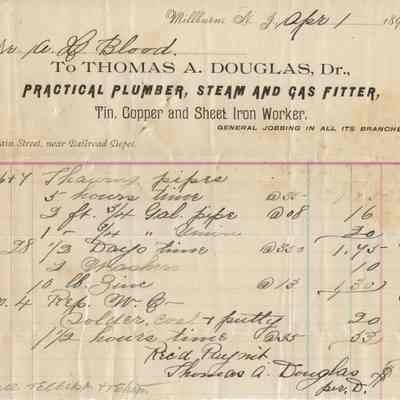 Millburn N. J., Apr 1 189
Mr A. H. Blood.
To THOMAS A. DOUGLAS, Dr.,
PRACTICAL PLUMBER, STEAM AND GAS FITTER,
Tin, Copper and Sheet Iron Worker.
GENERAL JOBBING IN ALL ITS BRANCHE
ain Street, near Railroad Depot.
Thawing pipes
5 hours time @ 35
2 ft. 3/4 Gal. pipe @ 08 16
1 - 3/4 " Union 20
28 1/2 Days time @ 350 1.75
2 Washers 10
10 lb. Zinc @ 13 1 30
4 Rep. W. C.
Solder, coal & putty 20
1 1/2 hours time @ 35 53
Rec'd Paymt
Thomas A. Douglas
per. D.